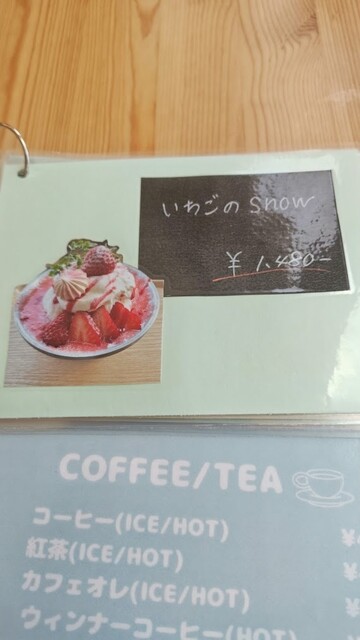 いちごのsnow
¥1,480-
COFFEE/TEA
コーヒー(ICE/HOT)
紅茶(ICE/HOT)
カフェオレ(ICE/HOT)
ウィンナーコーヒー(ICE/HOT)